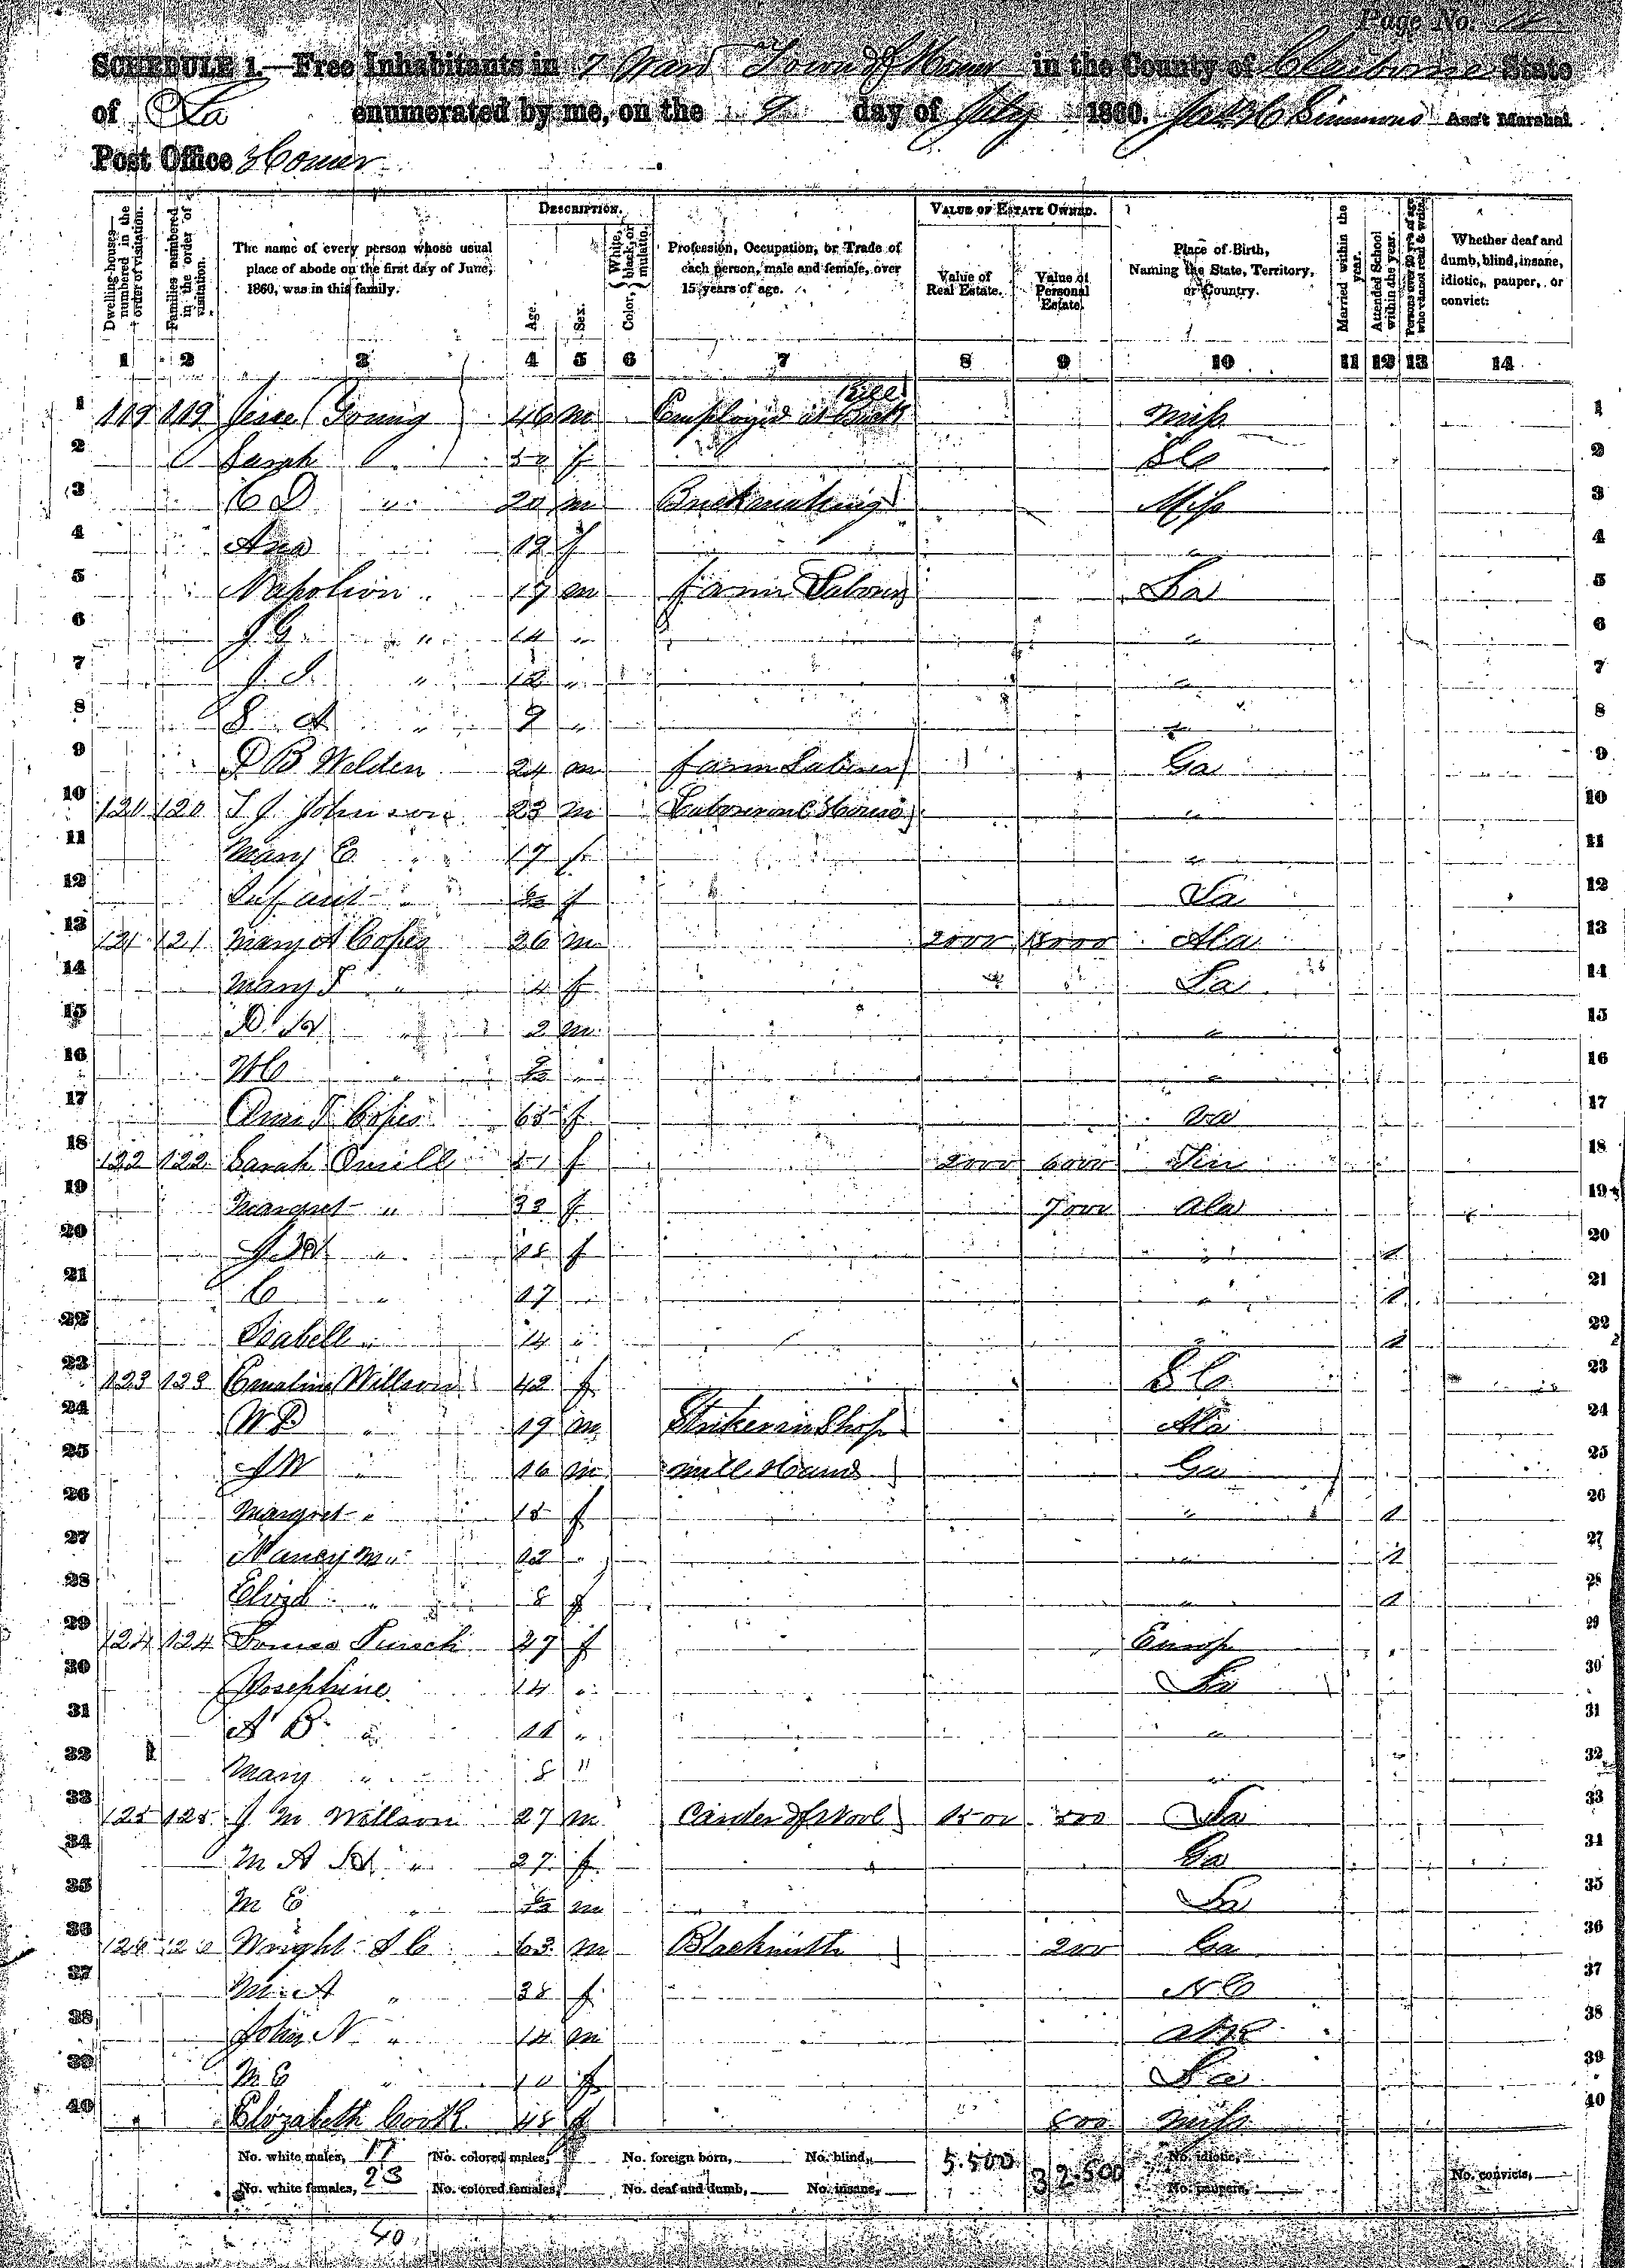 Page No.
SCHEDULE 1.—Free Inhabitants in 7 Ward Town of Homer in the County of Claiborne State
of La enumerated by me, on the 2 day of July 1860. Simmons Ass't Marshal
Post Office Homer
Dwelling-houses—numbered in the order of visitation.
Families numbered in the order of visitation.
The name of every person whose usual place of abode on the first day of June, 1860, was in this family.
DESCRIPTION.
Age.
Sex.
Color, { White, black, or mulatto.
Profession, Occupation, or Trade of each person, male and female, over 15 years of age.
VALUE OF ESTATE OWNED.
Value of Real Estate.
Value of Personal Estate.
Place of Birth, Naming the State, Territory, or Country.
Married within the year.
Attended School within the year.
Persons over 20 y'rs of age who cannot read & write.
Whether deaf and dumb, blind, insane, idiotic, pauper, or convict.
1 2 3 4 5 6 7 8 9 10 11 12 13 14
1 119 119 Jesse Young 46 m Employed at Brick Kill Miss 1
2 Sarah " f S C 2
3 C D " 20 m Brickmaking Miss 3
4 Ana " 19 f " 4
5 Napolion " 17 m farm Laborer La 5
6 J G " 14 " " 6
7 " 12 " " 7
8 S A " 9 " " 8
9 P B Welden 24 m farm Laborer Ga 9
10 120 120 T J Johnson 23 m " 10
11 Mary E " 17 f " 11
12 Infant " f La 12
13 121 121 Mary A Copes 26 m 2000 Ala 13
14 Mary F " 4 f La 14
15 D W " 2 m " 15
16 " " " 16
17 Ann F Copes 65 f 17
18 122 122 Sarah Oneill 51 f 2000 6000 18
19 Margret " 33 f 7000 Ala 19
20 J M " 18 f " 1 20
21 C " 17 " " 1 21
22 Isabell " 14 " " 1 22
23 123 123 Emaline Willson 42 f S C 23
24 W B " 19 m Striker in Shop Ala 24
25 J W " 16 m Mill Hand Ga 25
26 Margret " 15 f " 1 26
27 Nancy M " 12 " " 1 27
28 Eliza " 8 f " 1 28
29 124 124 Louisa Pursch 37 f Europ 29
30 Josephine 14 " La 30
31 A B " 11 " " 31
32 Mary " 8 " " 32
33 125 125 J M Willson 27 m Carder of Wool 1500 500 La 33
34 M A " 27 f Ga 34
35 M E " m La 35
36 126 Wright J C 63 m Blacksmith 200 Ga 36
37 M A " 38 f N C 37
38 John N " 14 m Ark 38
39 M E " 10 f La 39
40 Elizabeth Cook 48 f 500 Miss 40
No. white males, 17 No. colored males, No. foreign born, No. blind, 5.500 32.500 No. idiotic,
No. white females, 23 No. colored females, No. deaf and dumb, No. insane, No. paupers, No. convicts,
40